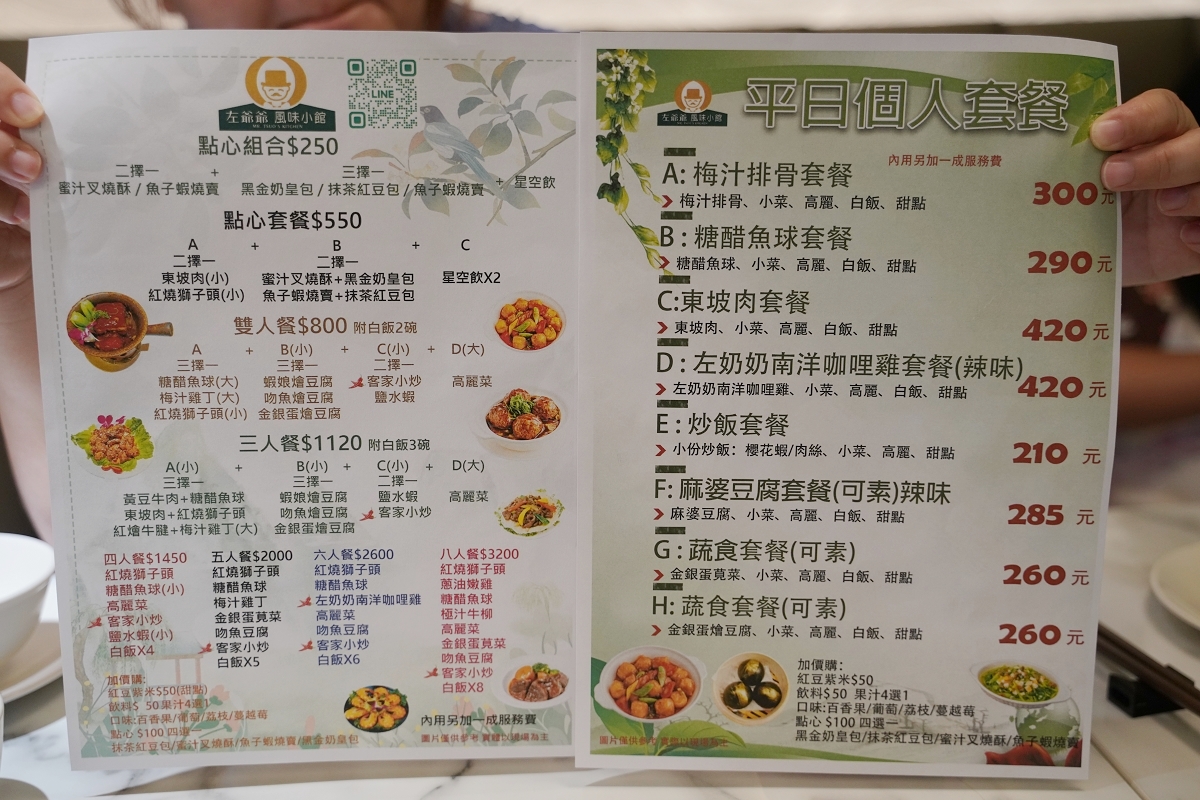 左爺爺 風味小館
LINE
點心組合$250
二擇一 + 三擇一
蜜汁叉燒酥 / 魚子蝦燒賣 黑金奶皇包 / 抹茶紅豆包 / 魚子蝦燒賣 + 星空飲
點心套餐$550
A + B + C
二擇一 二擇一
東坡肉(小) 蜜汁叉燒酥+黑金奶皇包 星空飲X2
紅燒獅子頭(小) 魚子蝦燒賣+抹茶紅豆包
雙人餐$800 附白飯2碗
A + B(小) + C(小) + D(大)
三擇一 三擇一 二擇一
糖醋魚球(大) 蝦娘燴豆腐 客家小炒 高麗菜
梅汁雞丁(大) 吻魚燴豆腐 鹽水蝦
紅燒獅子頭(小) 金銀蛋燴豆腐
三人餐$1120 附白飯3碗
A(小) + B(小) + C(小) + D(大)
三擇一 三擇一 二擇一
黃豆牛肉+糖醋魚球 蝦娘燴豆腐 鹽水蝦 高麗菜
東坡肉+紅燒獅子頭 吻魚燴豆腐 客家小炒
紅燴牛腱+梅汁雞丁(大) 金銀蛋燴豆腐
四人餐$1450
紅燒獅子頭
糖醋魚球(小)
高麗菜
客家小炒
鹽水蝦(小)
白飯X4
五人餐$2000
紅燒獅子頭
糖醋魚球
梅汁雞丁
金銀蛋莧菜
吻魚豆腐
客家小炒
白飯X5
六人餐$2600
紅燒獅子頭
糖醋魚球
左奶奶南洋咖哩雞
高麗菜
吻魚豆腐
客家小炒
白飯X6
八人餐$3200
紅燒獅子頭
蔥油嫩雞
糖醋魚球
極汁牛柳
高麗菜
金銀蛋莧菜
吻魚豆腐
客家小炒
白飯X8
加價購:
紅豆紫米$50(甜點)
飲料$ 50 果汁4選1
口味:百香果/葡萄/荔枝/蔓越莓
點心 $100 四選一
抹茶紅豆包/蜜汁叉燒酥/魚子蝦燒賣/黑金奶皇包
內用另加一成服務費
圖片僅供參考 實體以現場為主
左爺爺 風味小館
平日個人套餐
內用另加一成服務費
A: 梅汁排骨套餐 300元
梅汁排骨、小菜、高麗、白飯、甜點
B : 糖醋魚球套餐 290元
糖醋魚球、小菜、高麗、白飯、甜點
C:東坡肉套餐 420元
東坡肉、小菜、高麗、白飯、甜點
D : 左奶奶南洋咖哩雞套餐(辣味) 420元
左奶奶南洋咖哩雞、小菜、高麗、白飯、甜點
E : 炒飯套餐 210 元
小份炒飯: 櫻花蝦/肉絲、小菜、高麗、甜點
F: 麻婆豆腐套餐(可素)辣味 285 元
麻婆豆腐、小菜、高麗、白飯、甜點
G : 蔬食套餐(可素) 260 元
金銀蛋莧菜、小菜、高麗、白飯、甜點
H: 蔬食套餐(可素) 260 元
金銀蛋燴豆腐、小菜、高麗、白飯、甜點
加價購:
紅豆紫米$50
飲料$50 果汁4選1
口味:百香果/葡萄/荔枝/蔓越莓
點心 $100 四選一
黑金奶皇包/抹茶紅豆包/蜜汁叉燒酥/魚子蝦燒賣
圖片僅供參考 實體以現場為主